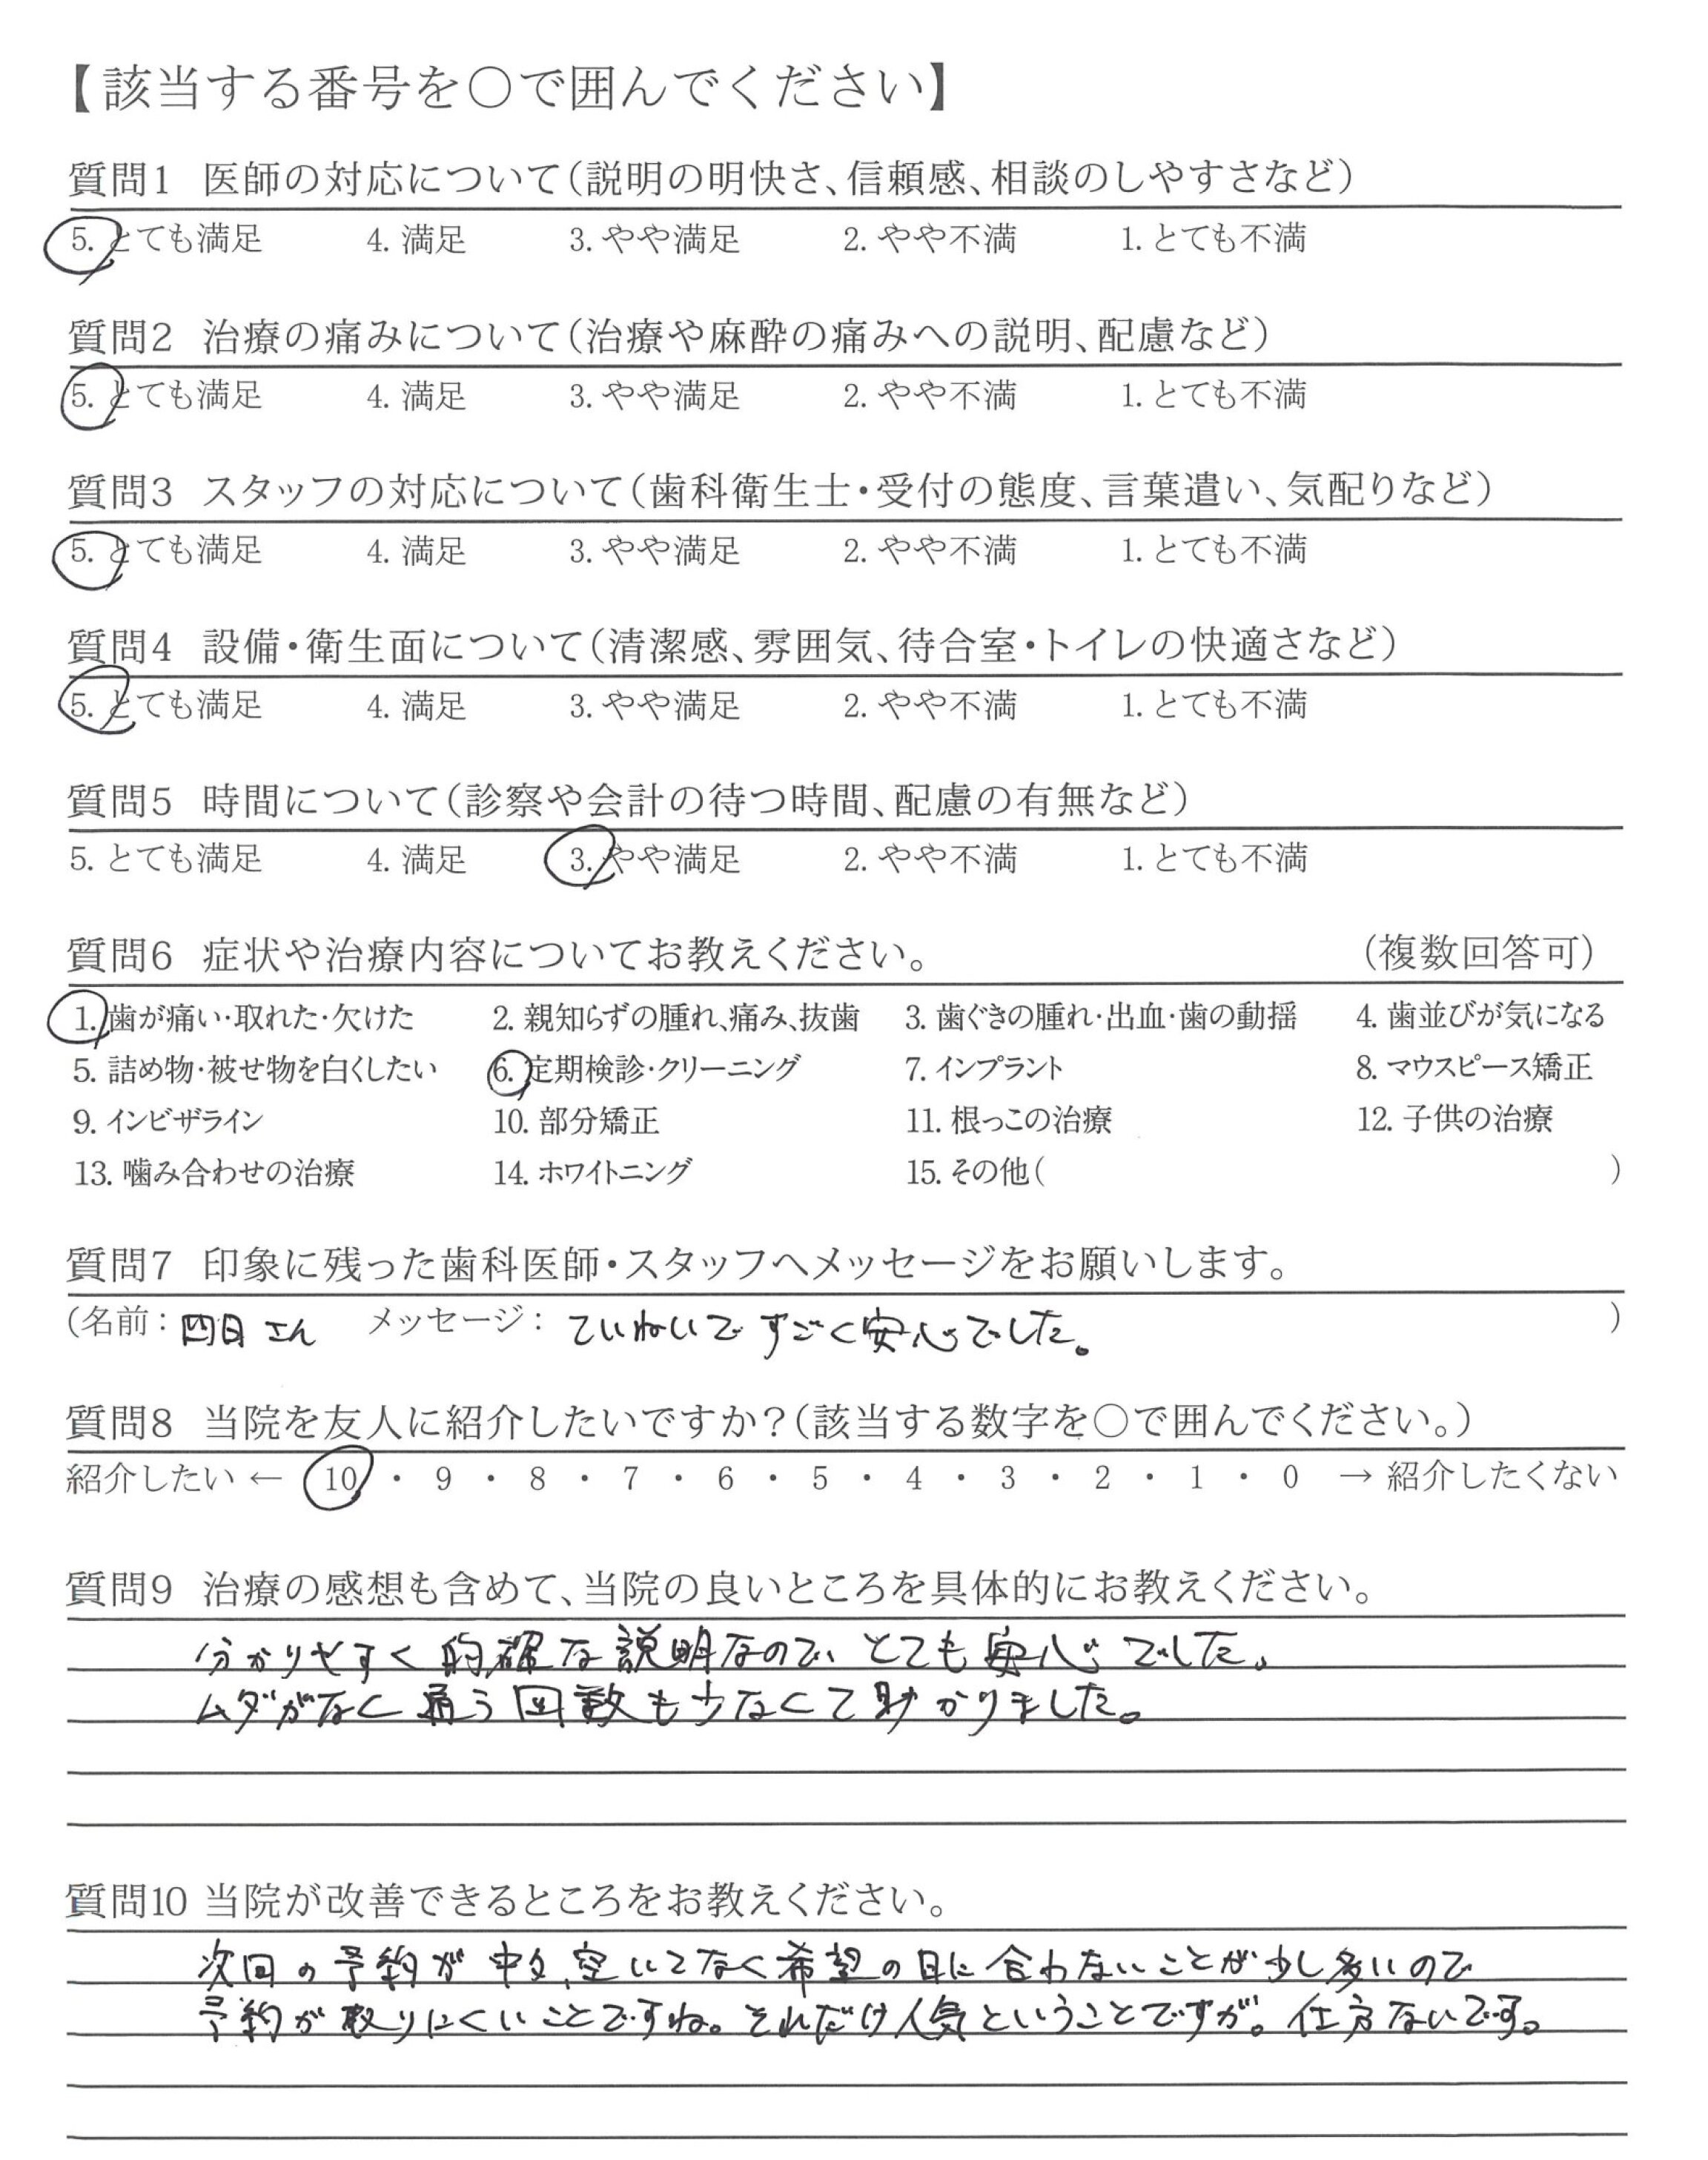 【該当する番号を〇で囲んでください】
質問1 医師の対応について（説明の明快さ、信頼感、相談のしやすさなど）
5. とても満足 4. 満足 3. やや満足 2. やや不満 1. とても不満
質問2 治療の痛みについて（治療や麻酔の痛みへの説明、配慮など）
5. とても満足 4. 満足 3. やや満足 2. やや不満 1. とても不満
質問3 スタッフの対応について（歯科衛生士・受付の態度、言葉遣い、気配りなど）
5. とても満足 4. 満足 3. やや満足 2. やや不満 1. とても不満
質問4 設備・衛生面について（清潔感、雰囲気、待合室・トイレの快適さなど）
5. とても満足 4. 満足 3. やや満足 2. やや不満 1. とても不満
質問5 時間について（診察や会計の待つ時間、配慮の有無など）
5. とても満足 4. 満足 3. やや満足 2. やや不満 1. とても不満
質問6 症状や治療内容についてお教えください。 （複数回答可）
1. 歯が痛い・取れた・欠けた 2. 親知らずの腫れ、痛み、抜歯 3. 歯ぐきの腫れ・出血・歯の動揺 4. 歯並びが気になる
5. 詰め物・被せ物を白くしたい 6. 定期検診・クリーニング 7. インプラント 8. マウスピース矯正
9. インビザライン 10. 部分矯正 11. 根っこの治療 12. 子供の治療
13. 噛み合わせの治療 14. ホワイトニング 15. その他（ ）
質問7 印象に残った歯科医師・スタッフへメッセージをお願いします。
（名前： さん メッセージ： ていねいで すごく安心でした。 ）
質問8 当院を友人に紹介したいですか？（該当する数字を〇で囲んでください。）
紹介したい ← 10 ・ 9 ・ 8 ・ 7 ・ 6 ・ 5 ・ 4 ・ 3 ・ 2 ・ 1 ・ 0 → 紹介したくない
質問9 治療の感想も含めて、当院の良いところを具体的にお教えください。
分かりやすく 的確な説明なので、とても安心でした。
ムダがなく 通う回数も少なくて助かりました。
質問10 当院が改善できるところをお教えください。
次回の予約が 中々、空いてなく希望の日に合わないことが少し多いので
予約が取りにくいことですね。それだけ人気ということですが。仕方ないです。